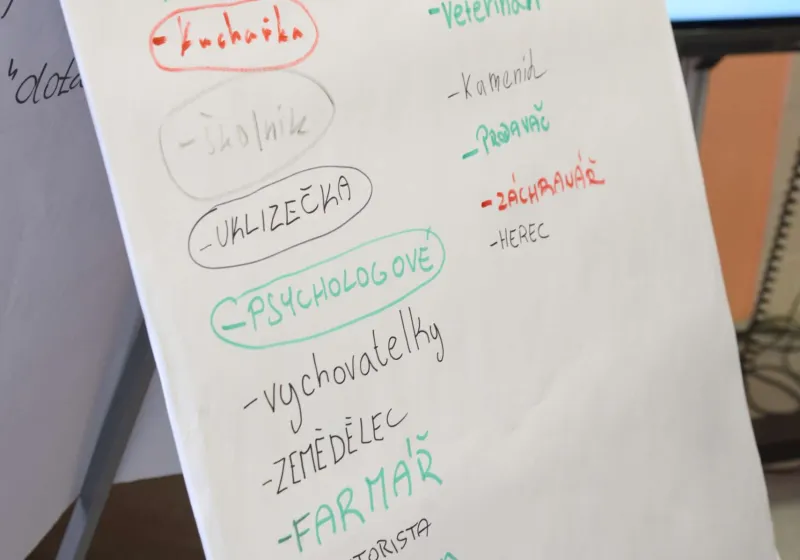 - Kuchařka
- Školník
- UKLIZEČKA
- PSYCHOLOGOVÉ
- vychovatelky
- ZEMĚDĚLEC
- FARMÁŘ
- Veterinář
- Kameník
- PRODAVAČ
- ZÁCHRANÁŘ
- HEREC